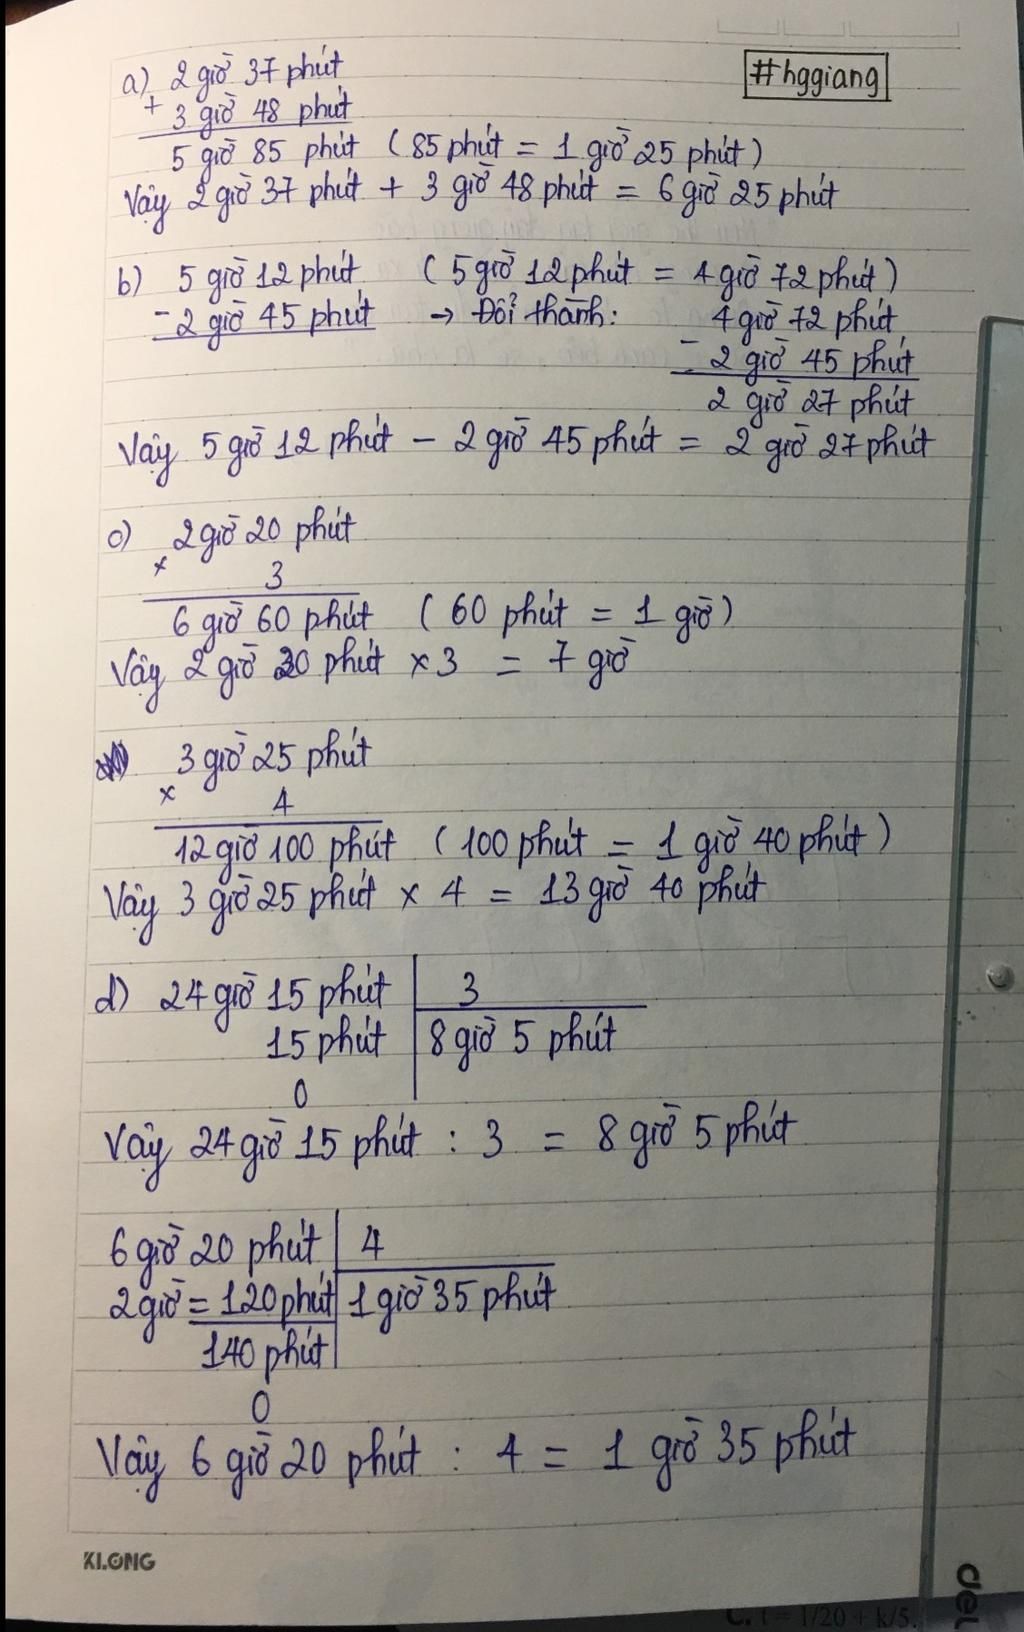 #hggiang
a) 2 giờ 37 phút
+ 3 giờ 48 phút
5 giờ 85 phút (85 phút = 1 giờ 25 phút)
Vậy 2 giờ 37 phút + 3 giờ 48 phút = 6 giờ 25 phút
b) 5 giờ 12 phút (5 giờ 12 phút = 4 giờ 72 phút)
- 2 giờ 45 phút → Đổi thành: 4 giờ 72 phút
- 2 giờ 45 phút
2 giờ 27 phút
Vậy 5 giờ 12 phút - 2 giờ 45 phút = 2 giờ 27 phút
c) 2 giờ 20 phút
x 3
6 giờ 60 phút (60 phút = 1 giờ)
Vậy 2 giờ 20 phút x 3 = 7 giờ
3 giờ 25 phút
x 4
12 giờ 100 phút (100 phút = 1 giờ 40 phút)
Vậy 3 giờ 25 phút x 4 = 13 giờ 40 phút
d) 24 giờ 15 phút 3
15 phút 8 giờ 5 phút
0
Vậy 24 giờ 15 phút : 3 = 8 giờ 5 phút
6 giờ 20 phút 4
2 giờ = 120 phút 1 giờ 35 phút
140 phút
0
Vậy 6 giờ 20 phút : 4 = 1 giờ 35 phút
KLONG
del